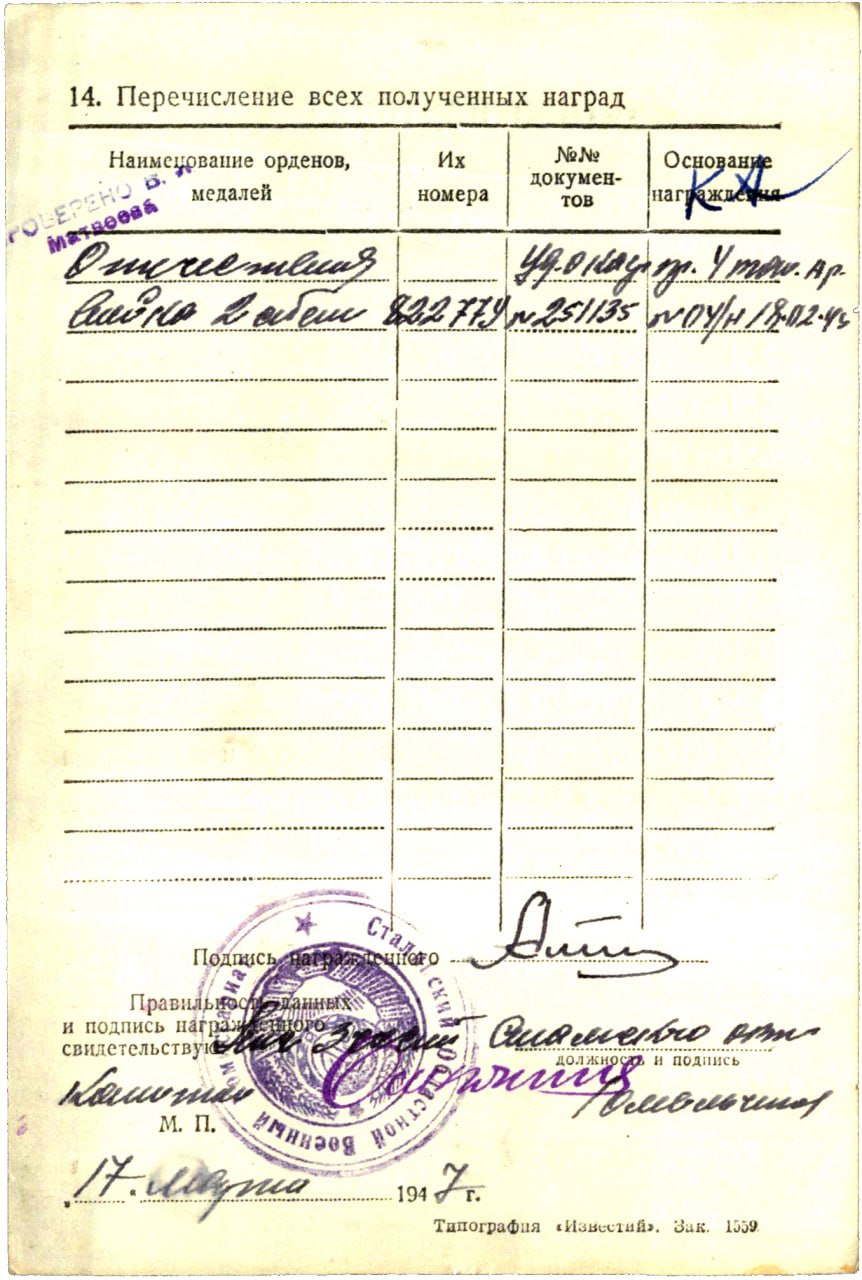 14. Перечисление всех полученных наград
Наименование орденов, медалей
Их номера
№№ документов
Основание награждения
КА
РОВЕРЕНО В.
Матвеева
Отечествення Уд. о наг пр. 4 тан. ар.
война 2 степ 822779 № 251135 № 04/н 18.02.45
Подпись награжденного
Правильность данных
и подпись награжденного
свидетельствую Нач 3 части Сталинского
должность и подпись
Капитан Омельченко
М. П.
Сталинский Областной Военный
„17“ Марта 1947 г.
Типография «Известий». Зак. 1559